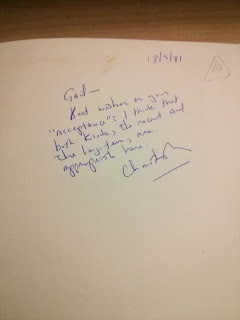 18/3/81
10
Gail —
Best wishes on your
"acceptance". I think that
both kinds, the recent and
the long-term, are
appropriate here.